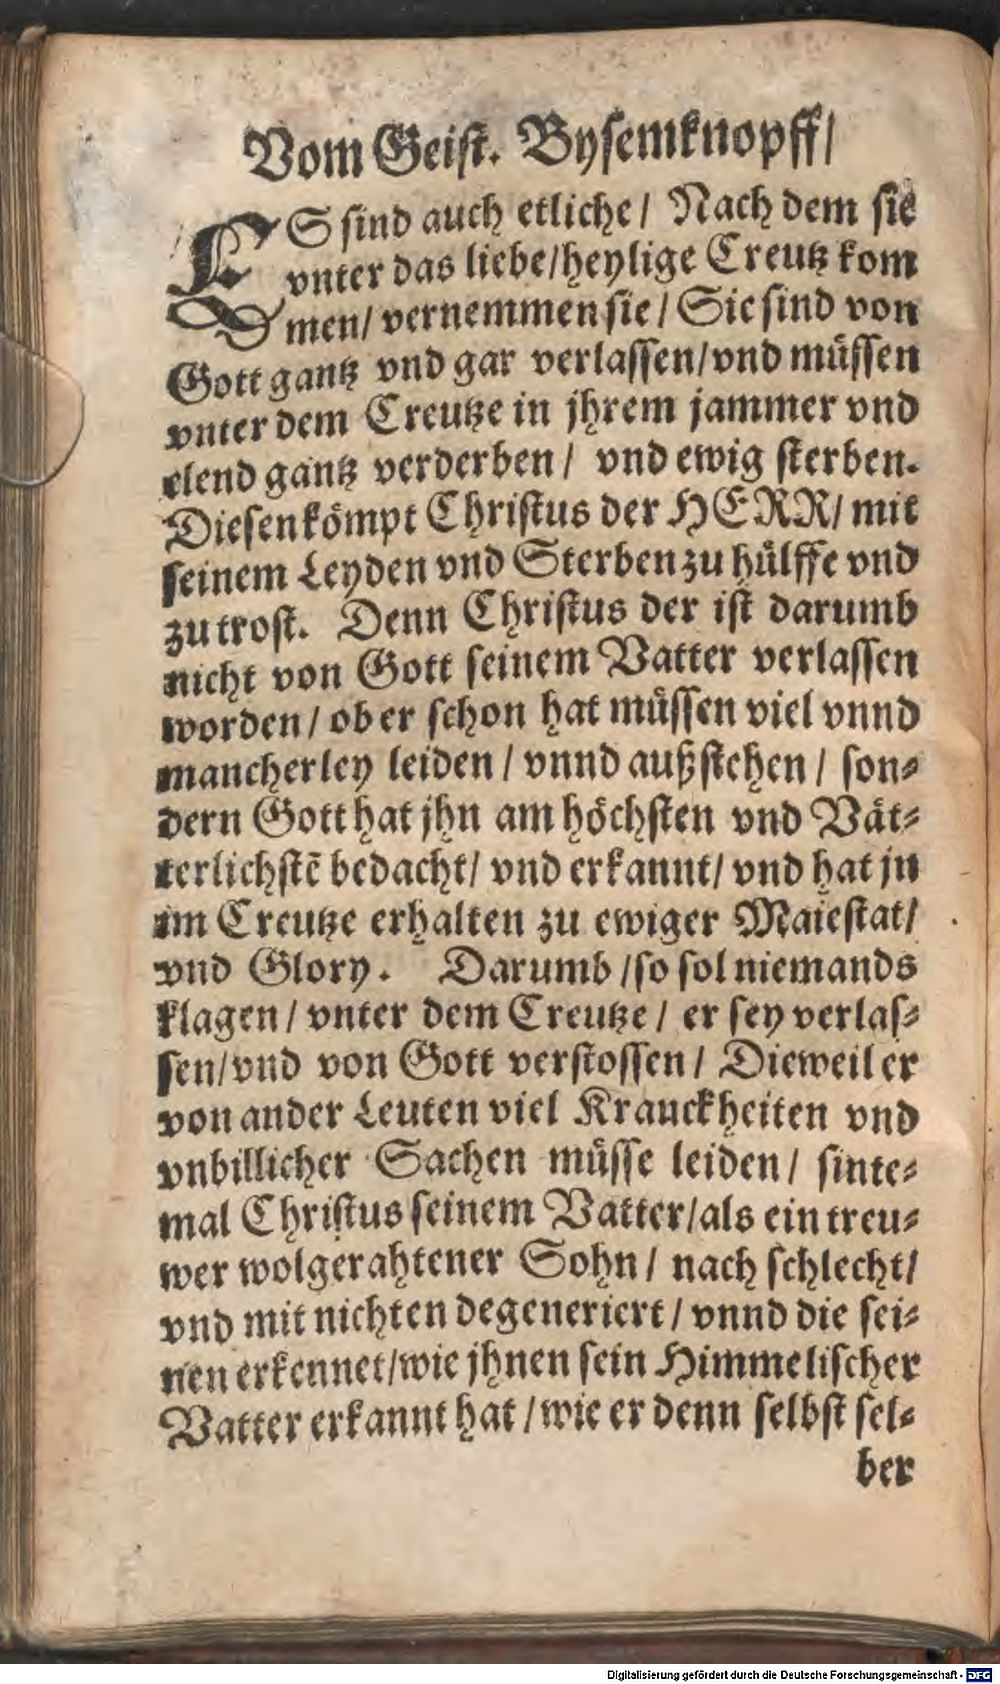 Vom Geist. Bysemknopff/
ES sind auch etliche/ Nach dem sie
vnter das liebe/heylige Creutz kom
men/ vernemmen sie/ Sie sind von
Gott gantz vnd gar verlassen/vnd müssen
vnter dem Creutze in jhrem jammer vnd
elend gantz verderben/ vnd ewig sterben.
Diesen kömpt Christus der HERR/ mit
seinem Leyden vnd Sterben zu hülffe vnd
zu trost. Denn Christus der ist darumb
nicht von Gott seinem Vatter verlassen
worden/ ob er schon hat müssen viel vnnd
mancherley leiden/ vnnd außstehen/ son⸗
dern Gott hat jhn am höchsten vnd Vät⸗
terlichstē bedacht/ vnd erkannt/ vnd hat jn
im Creutze erhalten zu ewiger Maiestat/
vnd Glory. Darumb/so sol niemands
klagen/ vnter dem Creutze/ er sey verlas⸗
sen/vnd von Gott verstossen/ Dieweil er
von ander Leuten viel Krauckheiten vnd
vnbillicher Sachen müsse leiden/ sinte⸗
mal Christus seinem Vatter/als ein treu⸗
wer wolgerahtener Sohn/ nach schlecht/
vnd mit nichten degeneriert/ vnnd die sei⸗
nen erkennet/wie jhnen sein Himmelischer
Vatter erkannt hat/wie er denn selbst sel⸗
ber
Digitalisierung gefördert durch die Deutsche Forschungsgemeinschaft - DFG